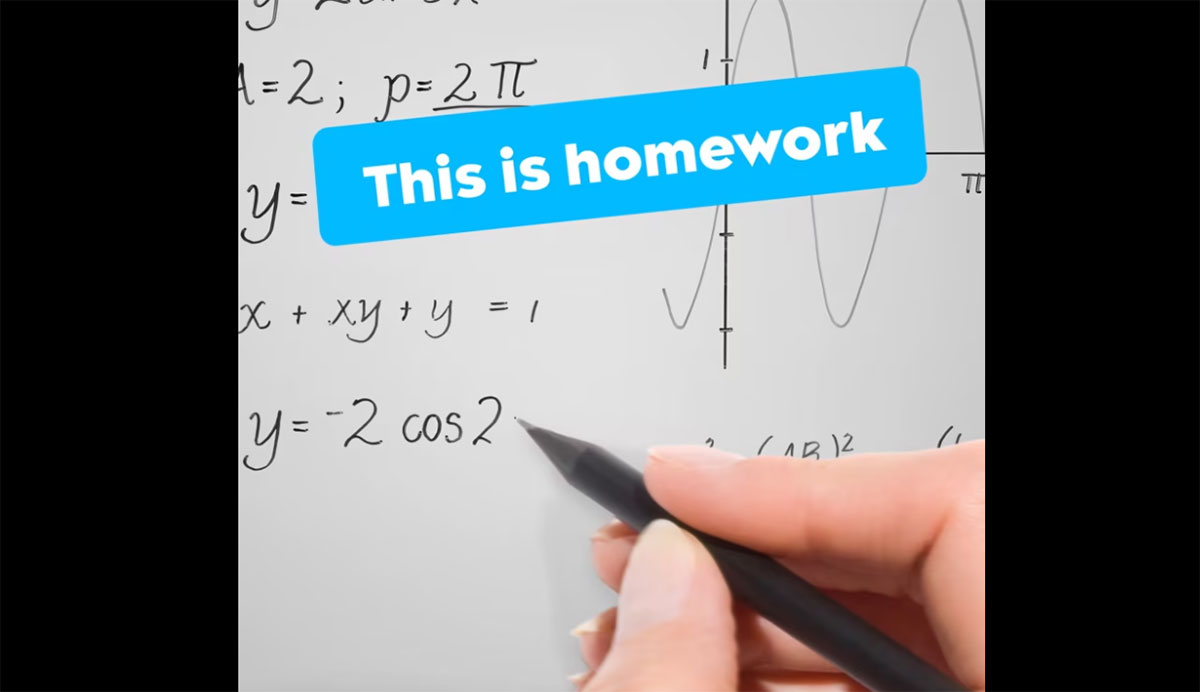 A=2; p=2π
This is homework
y=
x + xy + y = 1
y= -2 cos2
1
π
(AB)²